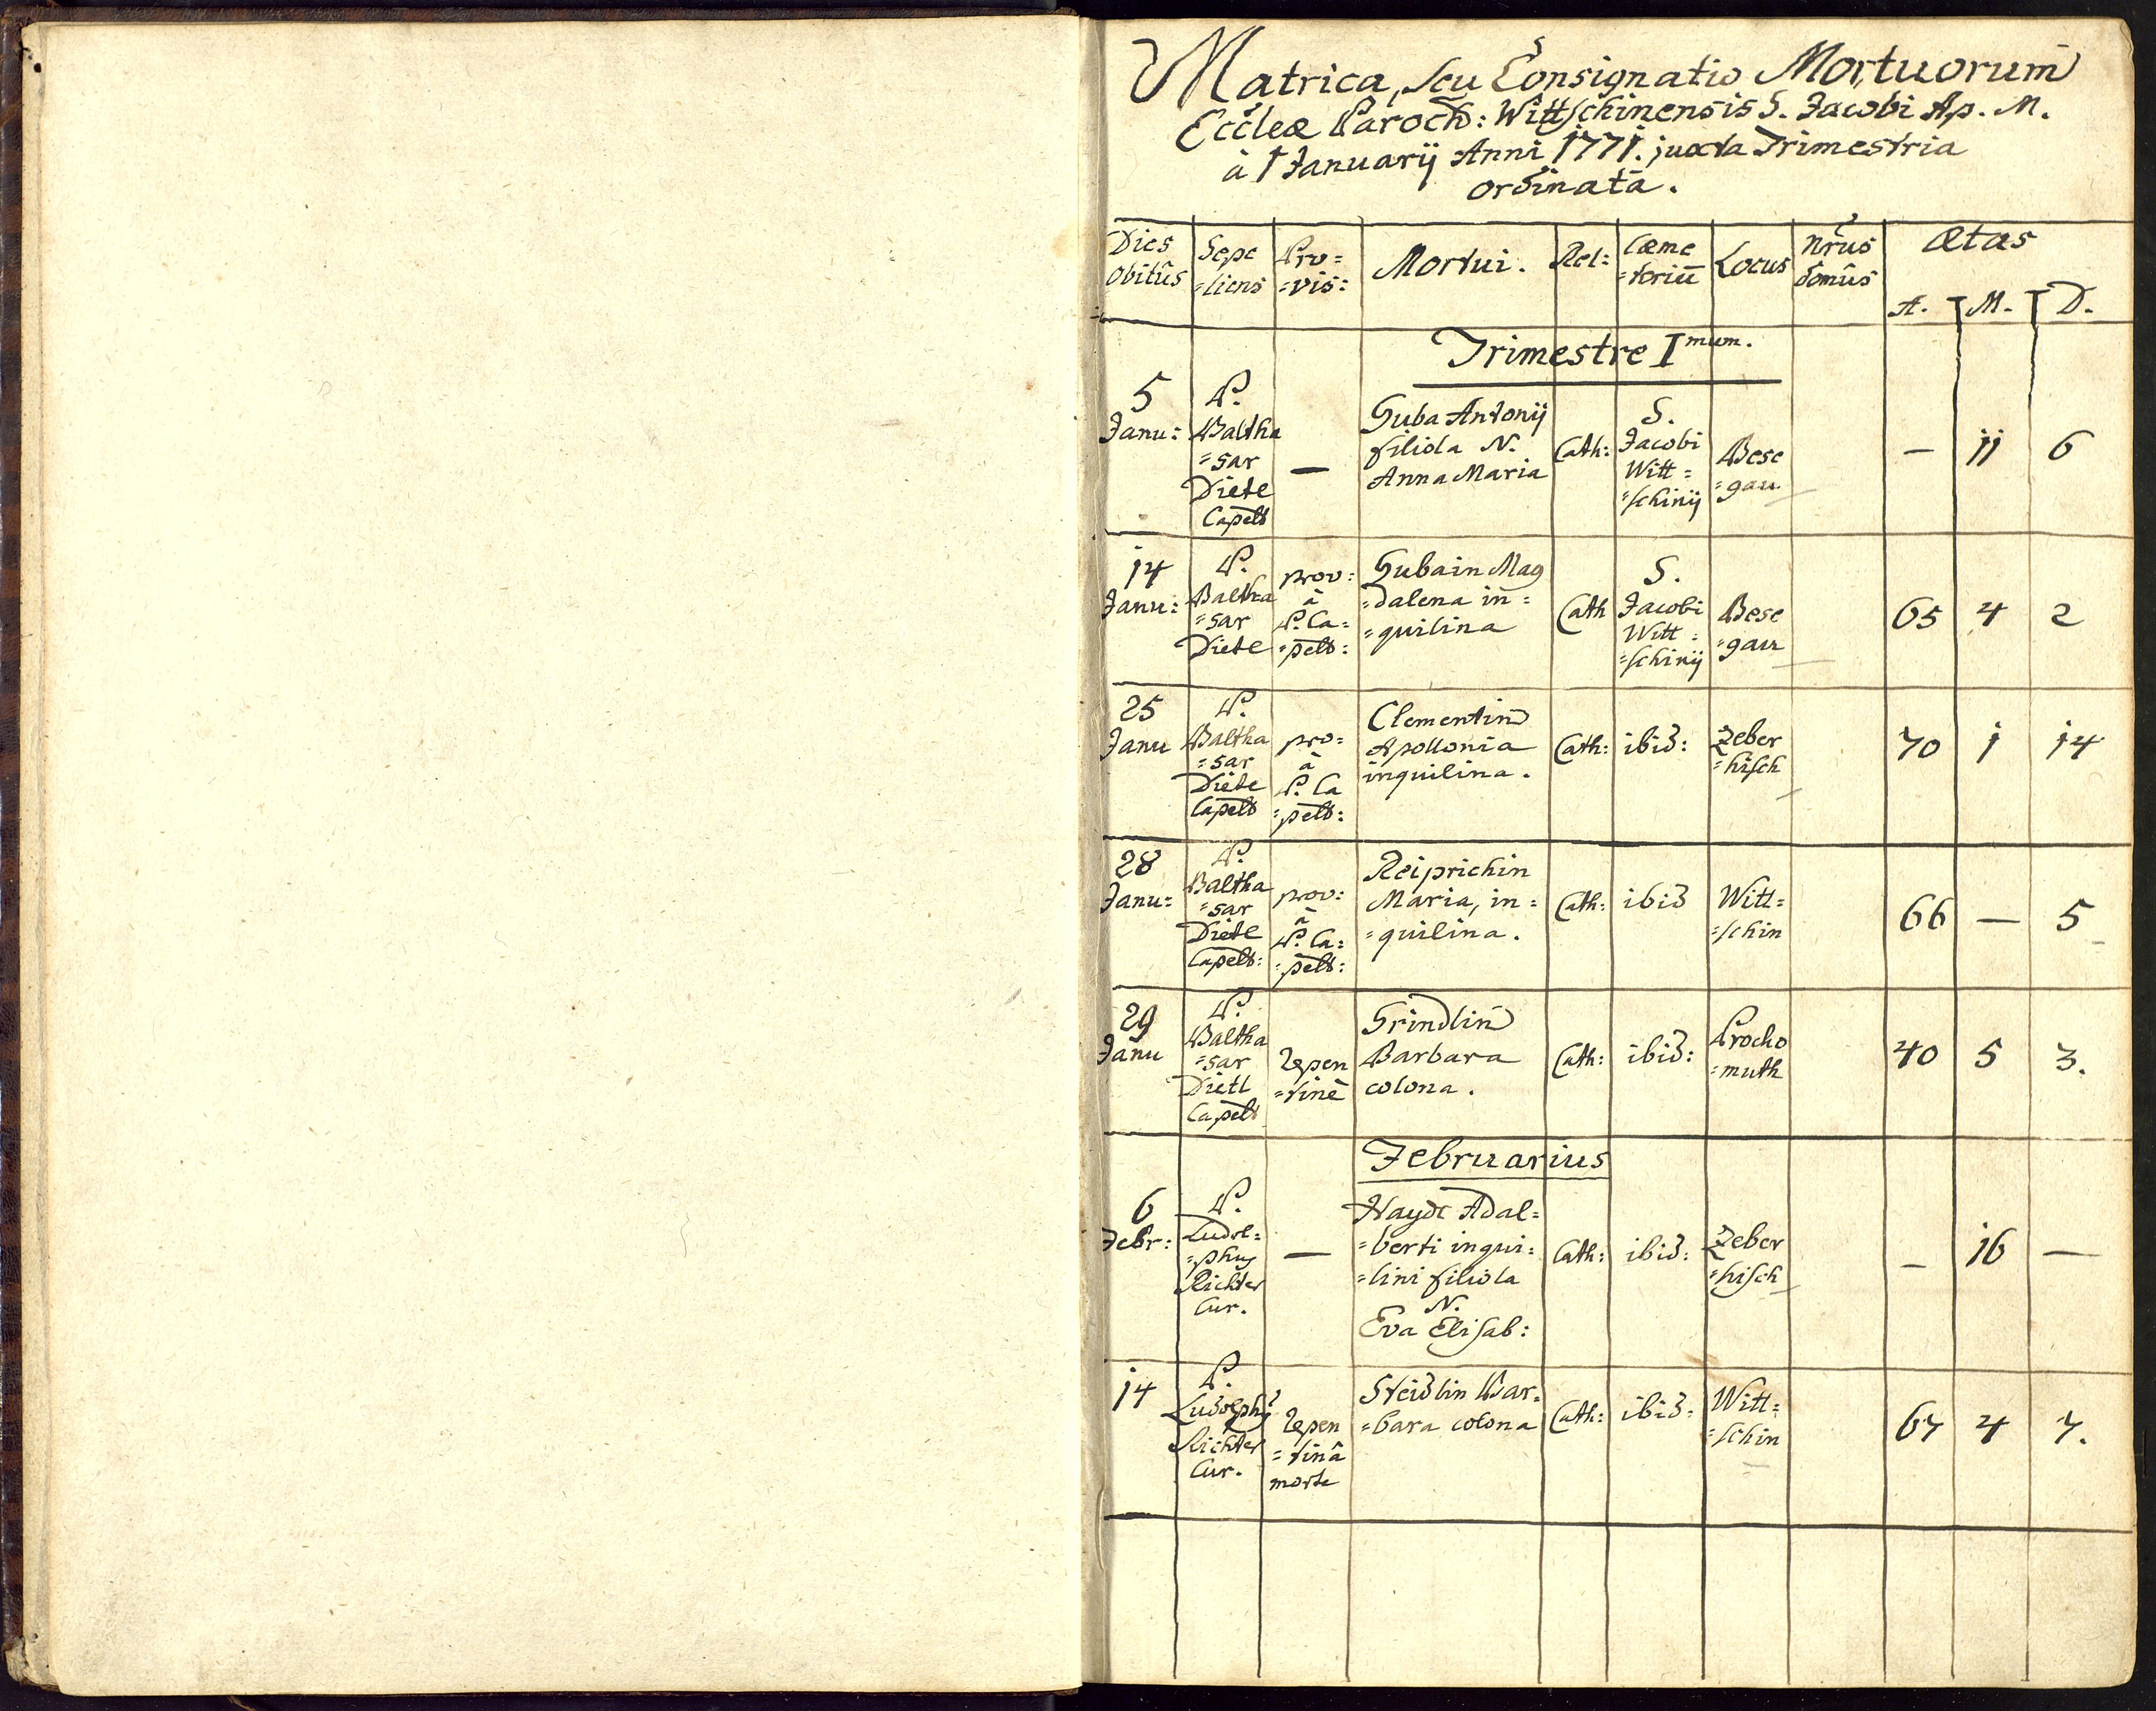 Matrica, seu Consignatio Mortuorum
Eccleæ Paroch: Wittschinensis S. Jacobi Ap. M.
à 1 Januarij Anni 1771. juxta Trimestria
ordinata.
Dies obitûs
Sepe=liens
Pro=vis:
Mortui.
Rel:
Cæmeteriū
Locus
nrus domûs
Ætas
A. M. D.
Trimestre Imum.
5 Janu:
P. Baltha=sar Diete Capell
—
Guba Antonij
filiola N.
Anna Maria
Cath:
S. Jacobi Witt=schinij
Bese=gau
— 11 6
14 Janu:
P. Baltha=sar Diete
prov: à P. Ca=pell:
Gubain Mag
=dalena in=
=quilina
Cath
S. Jacobi Witt=schinij
Bese=gau
65 4 2
25 Janu
P. Baltha=sar Diete Capell
pro= à P. Ca=pell:
Clementin
Apollonia
inquilina.
Cath:
ibid:
Zeber=hisch
70 1 14
28 Janu:
P. Baltha=sar Dietl Capell:
prov: à P. Ca=pell:
Reiprichin
Maria, in=
=quilina.
Cath:
ibid
Witt=schin
66 — 5
29 Janu
P. Baltha=sar Dietl Capell
repen=tinè
Grindlin
Barbara
colona.
Cath:
ibid:
Procho=muth
40 5 3.
Februarius
6 Febr:
P. Ludol=phus Richter Cur.
—
Haydt Adal=
=berti inqui=
=lini filiola
N.
Eva Elisab:
Cath:
ibid:
Zeber=hisch
— 16 —
14
P. Ludolphus Richter Cur.
repen=tinâ morte
Steidlin Bar=
=bara colona
Cath:
ibid:
Witt=schin
67 4 7.